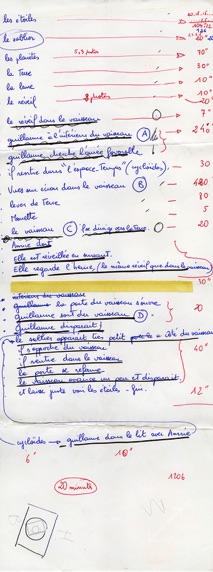 les étoiles
le sablier 20"
les planètes 5,3 photos 70"
la Terre 30"
la lune 10"
le réveil 8 photos 20"
le réveil dans le vaisseau 7"
guillaume à l'intérieur du vaisseau (A) 240"
guillaume cherche l'année favorable
il rentre dans "l'espace-temps" (cycloïdes) 30
Vues en avion dans le vaisseau (B) 480
lever de Terre 80
Mouette 5
le vaisseau (C) 20
Annie dort
elle est réveillée en sursaut.
elle regarde l'heure, le même réveil que dans le vaisseau
30"
intérieur du vaisseau
guillaume la porte du vaisseau s'ouvre
guillaume sort du vaisseau (D)
guillaume disparaît
le sablier apparaît très petit à côté du vaisseau
il s'approche du vaisseau 40"
il rentre dans le vaisseau
la porte se referme
le vaisseau avance un peu et disparaît
et laisse juste voir les étoiles - fin. 12"
cycloïdes → guillaume dans le lit avec Annie
6" 10"
1206
20 minutes